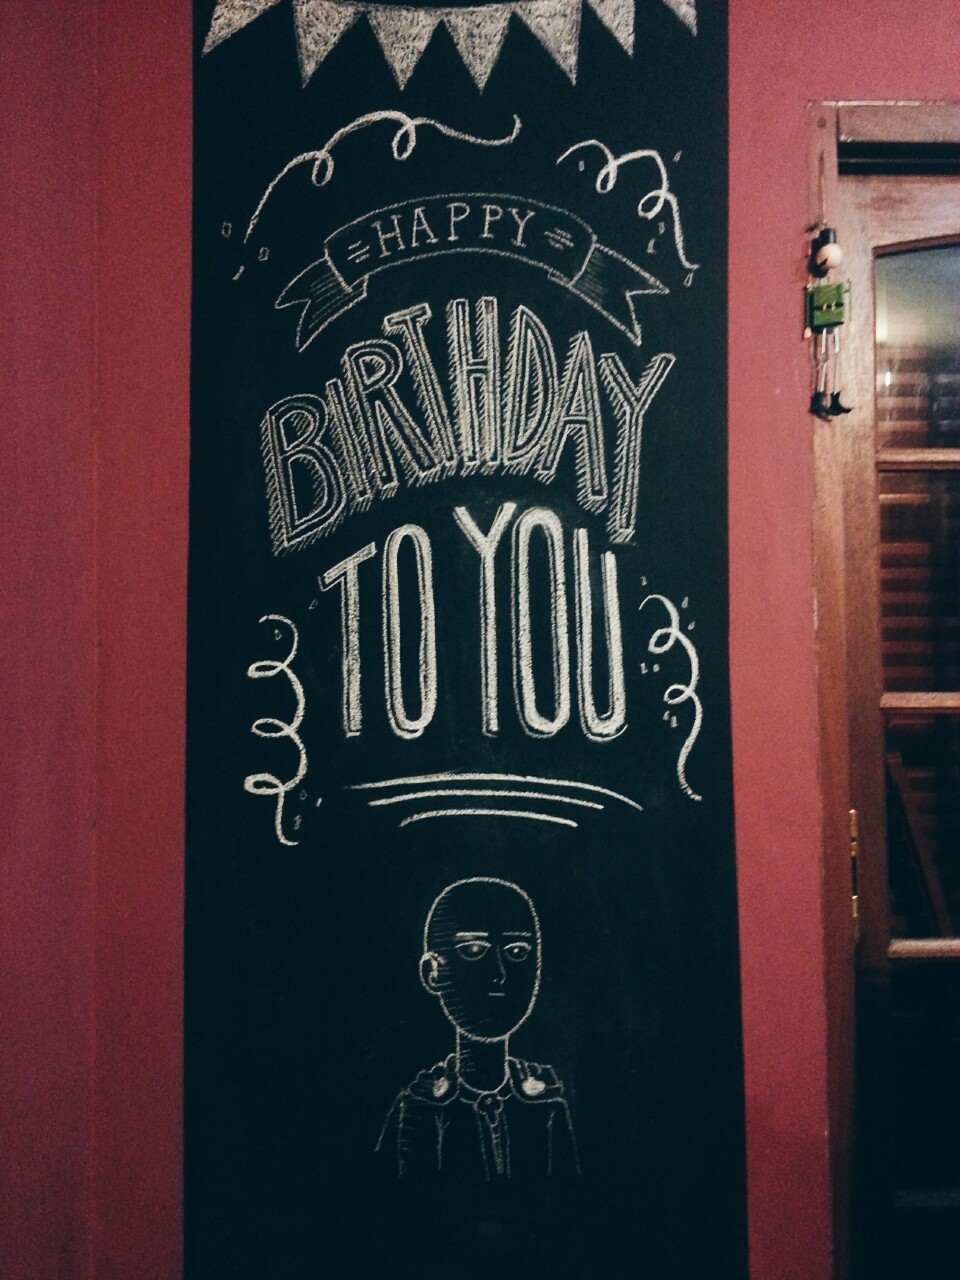 HAPPY
BIRTHDAY
TO YOU